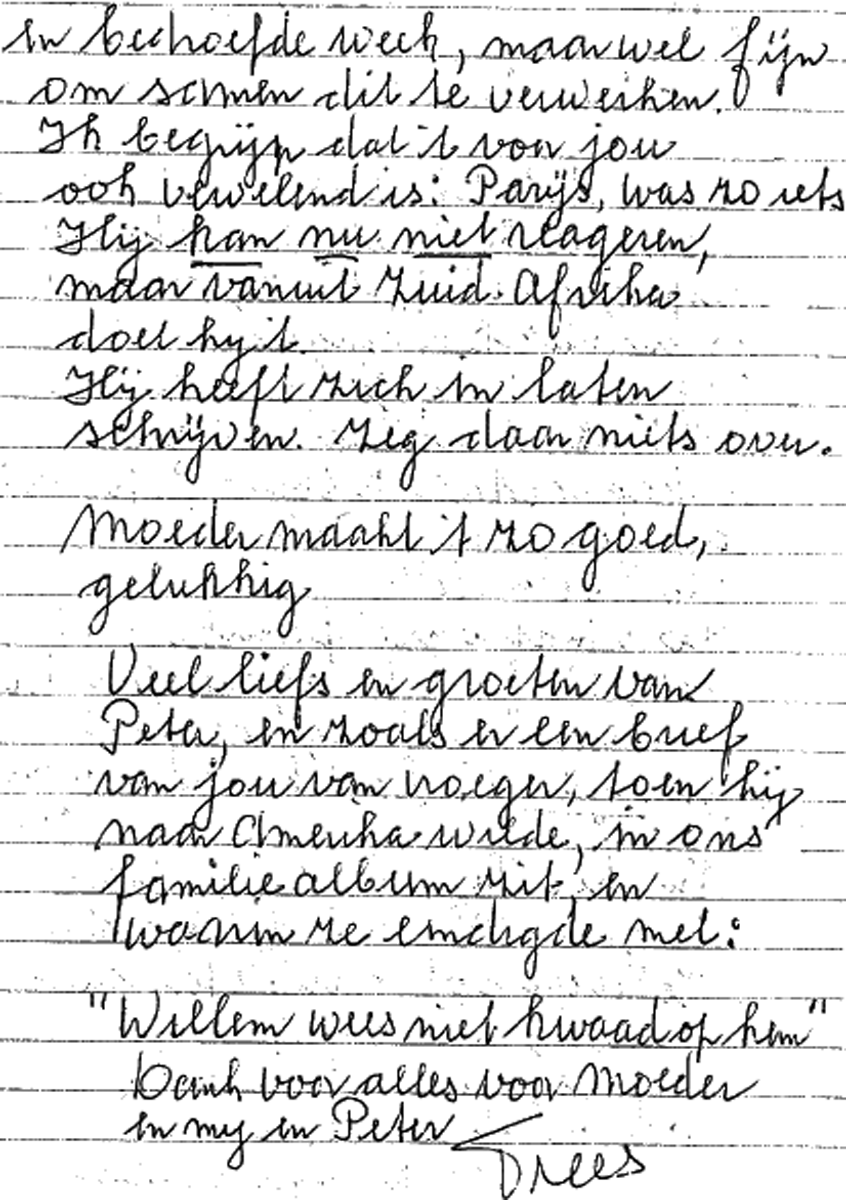 en behoefde week, maar wel fijn
om samen dit te verwerken.
Ik begrijp dat 't voor jou
ook vervelend is: Parijs, was zo iets
Hij kan nu niet reageren,
maar vanuit Zuid-Afrika
doet hy 't.
Hij heeft zich in laten
schrijven. Zeg daar niets over.
Moeder maakt 't zo goed,
gelukkig
Veel liefs en groeten van
Peter, en zoals er een brief
van jou van vroeger, toen hij
naar Amerika wilde, in ons
familie album zit, en
waarin ze eindigde met:
"Willem wees niet kwaad op hem"
Dank voor alles voor Moeder
en my en Peter
Trees